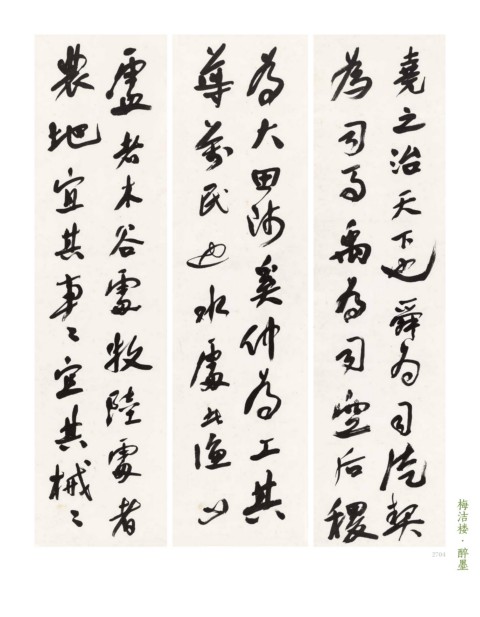 堯之治天下也舜为司徒契
為司马禹为司空后稷
为大田師奚仲为工其
導萬民也水處者漁山
處者木谷處牧陸處者
農地宜其事々宜其械々
梅洁楼·醉墨